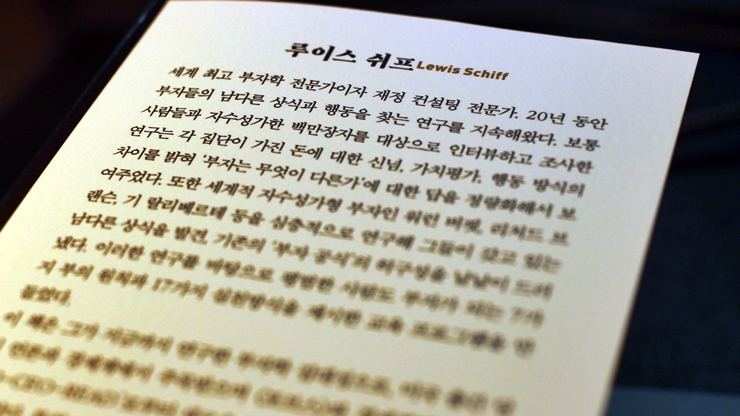 루이스 쉬프 Lewis Schiff
세계 최고 부자학 전문가이자 재정 컨설팅 전문가. 20년 동안
부자들의 남다른 상식과 행동을 찾는 연구를 지속해왔다. 보통
사람들과 자수성가한 백만장자를 대상으로 인터뷰하고 조사한
연구는 각 집단이 가진 돈에 대한 신념, 가치평가, 행동 방식의
차이를 밝혀 '부자는 무엇이 다른가'에 대한 답을 정량화해서 보
여주었다. 또한 세계적 자수성가형 부자인 워런 버핏, 리처드 브
랜슨, 기 랄리베르테 등을 심층적으로 연구해 그들이 갖고 있는
남다른 상식을 발견, 기존의 '부자 공식'의 허구성을 낱낱이 드러
냈다. 이러한 연구를 바탕으로 평범한 사람도 부자가 되는 7가
지 부의 원칙과 17가지 실천방식을 제시한 교육 프로그램을 만
들었다.
이 책은 그가 지금까지 연구한